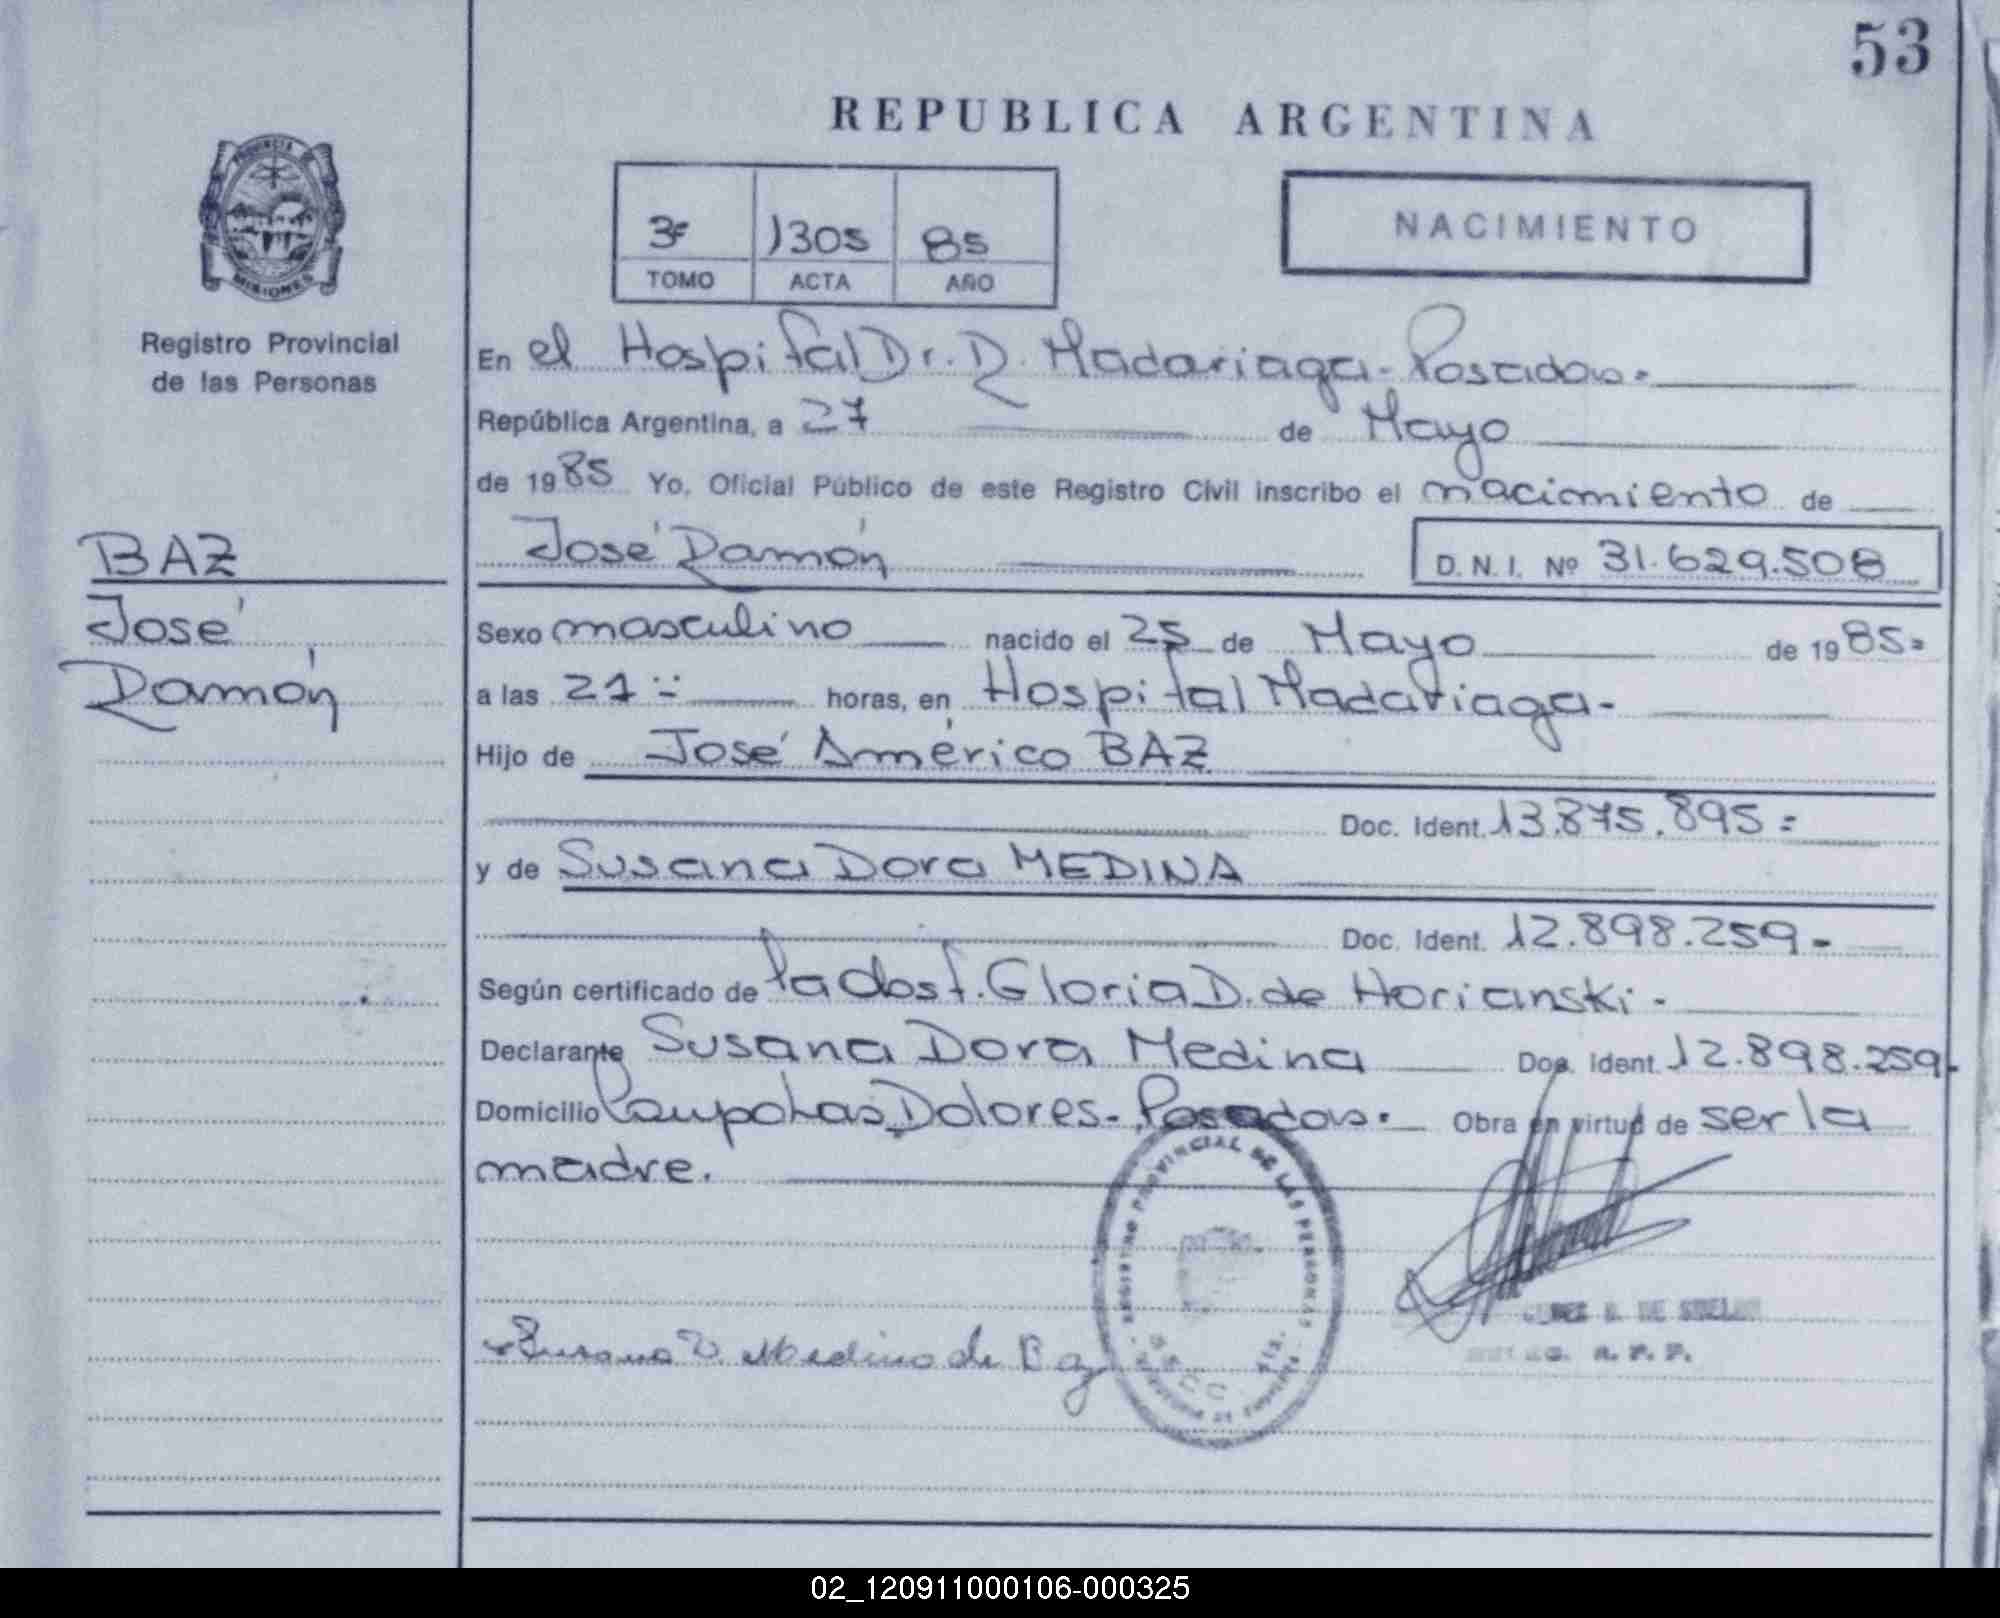 53
REPUBLICA ARGENTINA
PROVINCIA DE
MISIONES
Registro Provincial
de las Personas
3º 1305 85
TOMO ACTA AÑO
NACIMIENTO
En el Hospital Dr. R. Madariaga - Posadas.
República Argentina, a 27 de Mayo
de 1985 Yo, Oficial Público de este Registro Civil inscribo el nacimiento de
José Ramón D.N.I. Nº 31.629.508
BAZ
José
Ramón
Sexo masculino nacido el 25 de Mayo de 1985=
a las 21 horas, en Hospital Madariaga-
Hijo de José Américo BAZ
Doc. Ident. 13.875.895=
y de Susana Dora MEDINA
Doc. Ident. 12.898.259-
Según certificado de la Obst. Gloria D. de Horianski-
Declarante Susana Dora Medina Doc. Ident. 12.898.259-
Domicilio Dolores - Posadas. Obra en virtud de ser la
madre.
REGISTRO PROVINCIAL DE LAS PERSONAS
Susana D. Medina de Baz
R. P. P.
02_120911000106-000325